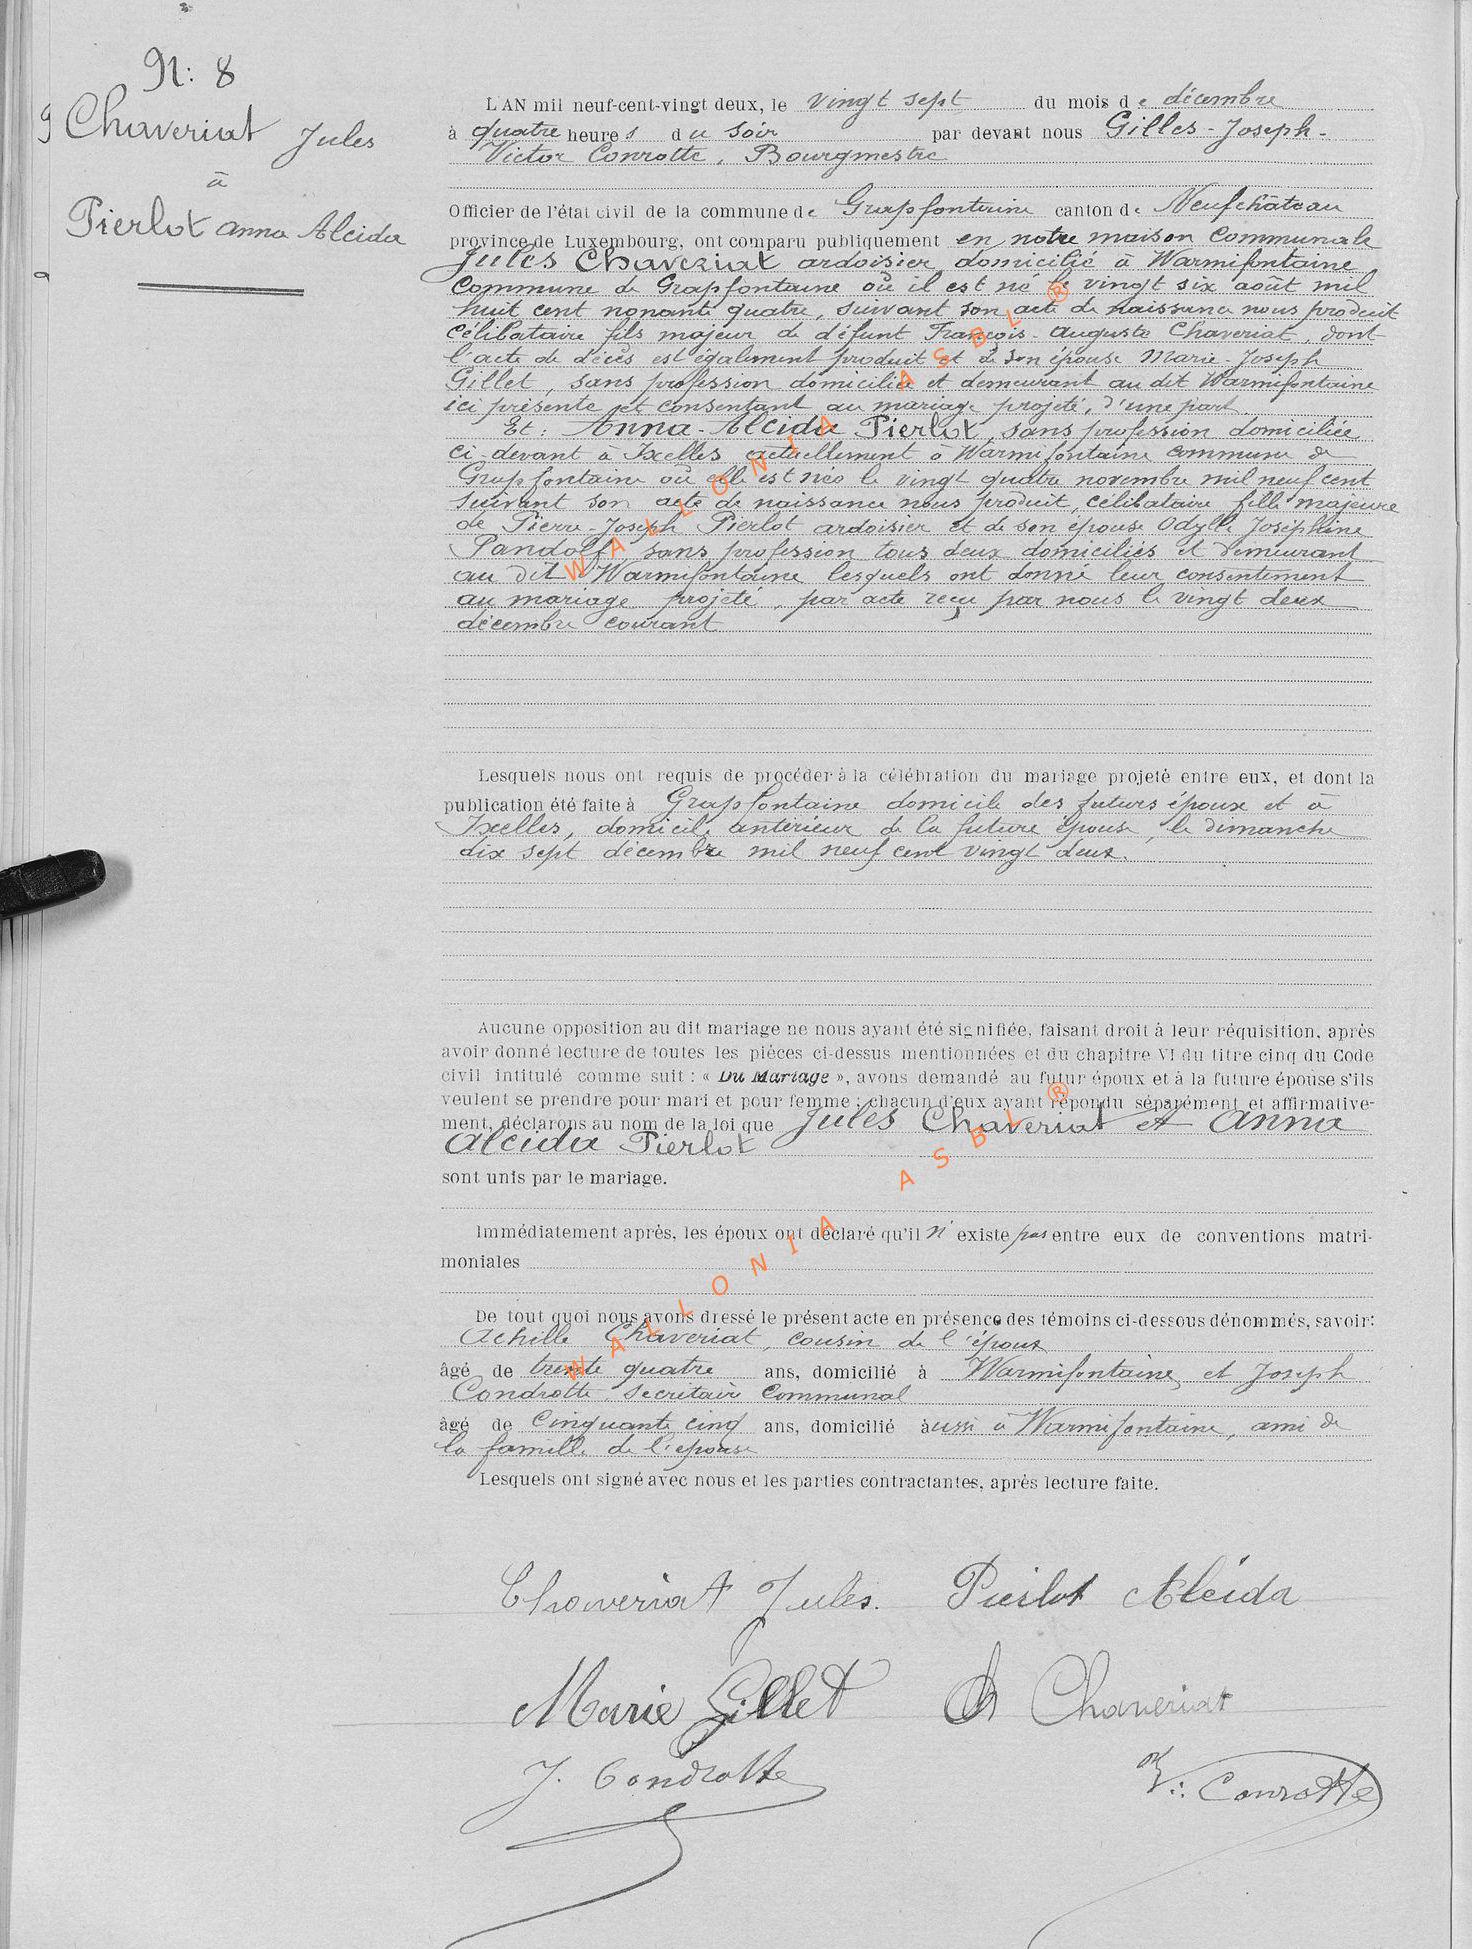 N: 8
Chaveriat Jules
à
Pierlot Anna Alcida
L'AN mil neuf-cent-vingt deux, le vingt sept du mois de décembre
à quatre heures du soir par devant nous Gilles-Joseph-
Victor Conrotte, Bourgmestre
Officier de l'état civil de la commune de Grapfontaine canton de Neufchâteau
province de Luxembourg, ont comparu publiquement en notre maison communale
Jules Chaveriat ardoisier domicilié à Warmifontaine
Commune de Grapfontaine où il est né le vingt six août mil
huit cent nonante quatre, suivant son acte de naissance nous produit
célibataire fils majeur de défunt François-Auguste Chaveriat, dont
l'acte de décès est également produit et de son épouse Marie-Joseph
Gillet, sans profession domiciliée et demeurant au dit Warmifontaine
ici présente et consentant au mariage projeté, d'une part
Et: Anna-Alcida Pierlot, sans profession domiciliée
ci-devant à Ixelles actuellement à Warmifontaine commune de
Grapfontaine où elle est née le vingt quatre novembre mil neuf cent
suivant son acte de naissance nous produit, célibataire fille majeure
de Pierre-Joseph Pierlot ardoisier et de son épouse Odylle Joséphine
Pandolf sans profession tous deux domiciliés et demeurant
au dit Warmifontaine lesquels ont donné leur consentement
au mariage projeté, par acte reçu par nous le vingt deux
décembre courant
Lesquels nous ont requis de procéder à la célébration du mariage projeté entre eux, et dont la
publication été faite à Grapfontaine domicile des futurs époux et à
Ixelles, domicile antérieur de la future épouse, le dimanche
dix sept décembre mil neuf cent vingt deux.
Aucune opposition au dit mariage ne nous ayant été signifiée, faisant droit à leur réquisition, après
avoir donné lecture de toutes les pièces ci-dessus mentionnées et du chapitre VI du titre cinq du Code
civil intitulé comme suit : « Du Mariage », avons demandé au futur époux et à la future épouse s'ils
veulent se prendre pour mari et pour femme ; chacun d'eux ayant répondu séparément et affirmative-
ment, déclarons au nom de la loi que Jules Chaveriat et Anna
Alcida Pierlot
sont unis par le mariage.
Immédiatement après, les époux ont déclaré qu'il n'existe pas entre eux de conventions matri-
moniales
De tout quoi nous avons dressé le présent acte en présence des témoins ci-dessous dénommés, savoir:
Achille Chaveriat, cousin de l'époux
âgé de trente quatre ans, domicilié à Warmifontaine, et Joseph
Condrotte secrétaire communal
âgé de cinquante cinq ans, domicilié aussi à Warmifontaine, ami de
la famille de l'épouse
Lesquels ont signé avec nous et les parties contractantes, après lecture faite.
Chaveriat Jules. Pierlot Alcida
Marie Gillet Ch Chaveriat
J. Condrotte V: Conrotte
WALLONIA ASBL ®
WALLONIA ASBL ®